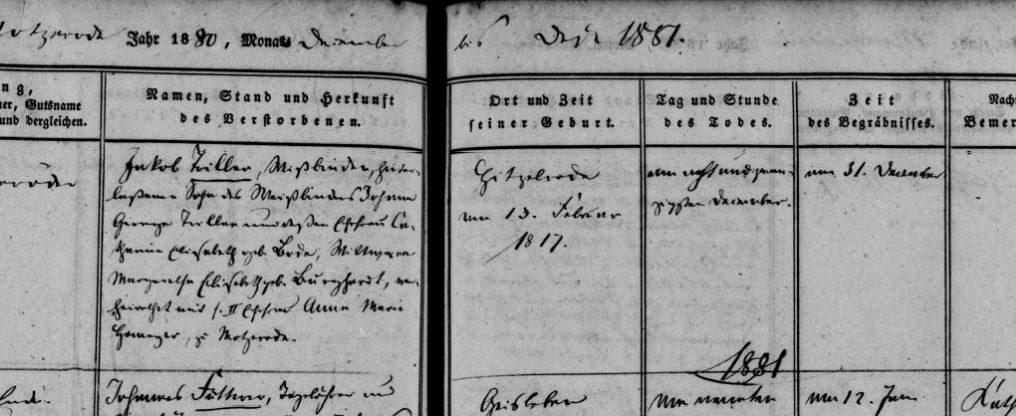 Motzerode Jahr 1880, Monat December
bis Decbr 1881.
ng,
ner, Gutsname
und dergleichen.
Namen, Stand und Herkunft
des Verstorbenen.
Ort und Zeit
seiner Geburt.
Tag und Stunde
des Todes.
Zeit
des Begräbnisses.
Nach
Bemer
Jakob Triller, Weißbinder, hinter-
laßener Sohn des Weißbinders Johann
George Triller und deßen Ehefrau Ca-
tharine Elisabeth geb. Bode, Wittwer von
Margaretha Elisabeth geb. Burghardt, ver-
heirathet mit s. II Ehefrau Anna Marie
zu Motzerode.
Hitzelrode
am 13. Februar
1817.
am acht und zwan-
zigsten December.
am 31. December
1881
Johannes Füllner, Tagelöhner
am neunten
am 12. Jan